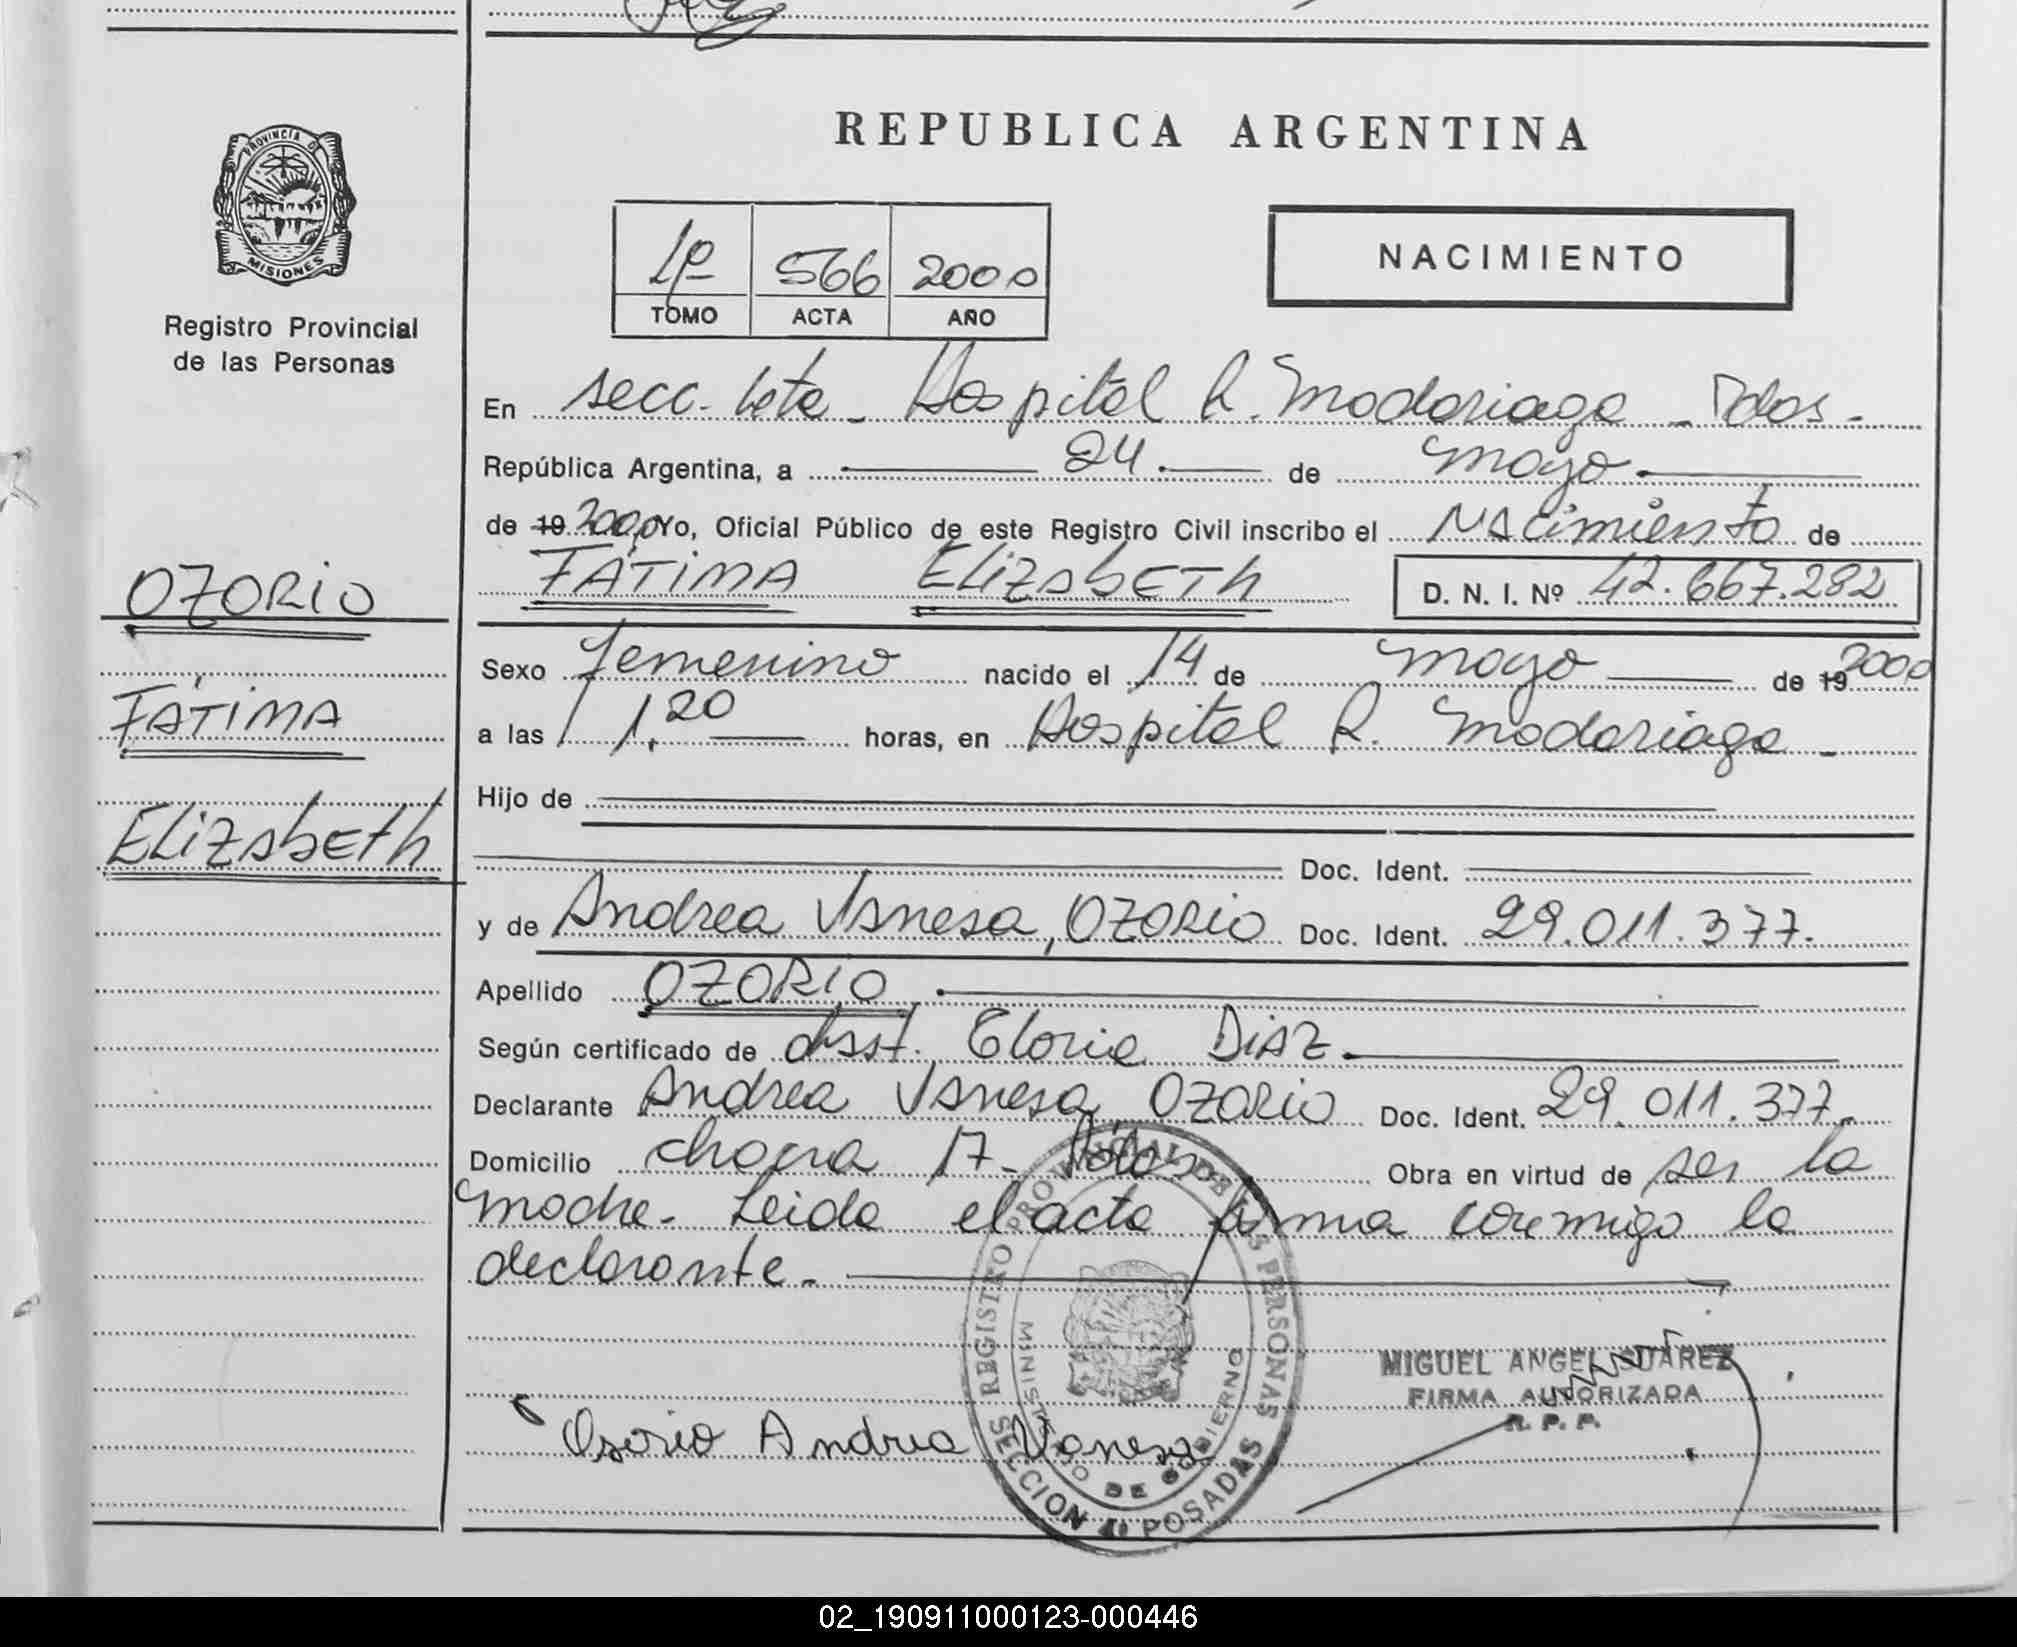 REPUBLICA ARGENTINA
PROVINCIA D
MISIONES
Registro Provincial
de las Personas
566 2000
TOMO ACTA AÑO
NACIMIENTO
En secc. 4ta - Hospital R. Madariaga - Pdas -
República Argentina, a 24 de mayo
de 19 2000 Yo, Oficial Público de este Registro Civil inscribo el Nacimiento de
FÁTIMA ELIZABETH D. N. I. Nº 42.667.282
OZORIO
FÁTIMA
ELIZABETH
Sexo femenino nacido el 14 de mayo de 19 2000
a las 1,20 horas, en Hospital R. Madariaga -
Hijo de
Doc. Ident.
y de Andrea Vanesa, OZORIO Doc. Ident. 29.011.377.
Apellido OZORIO
Según certificado de Gloria DIAZ.
Declarante Andrea Vanesa OZORIO Doc. Ident. 29.011.377.
Domicilio chacra 17 - Pdas Obra en virtud de ser la
madre - Leida el acta firma conmigo la
declarante -
REGISTRO PROVINCIAL DE LAS PERSONAS
MINISTERIO DE GOBIERNO
SECCION 4ª POSADAS
MIGUEL ANGEL SUÁREZ
FIRMA AUTORIZADA
R. P. P.
Osorio Andrea Vanesa
02_190911000123-000446